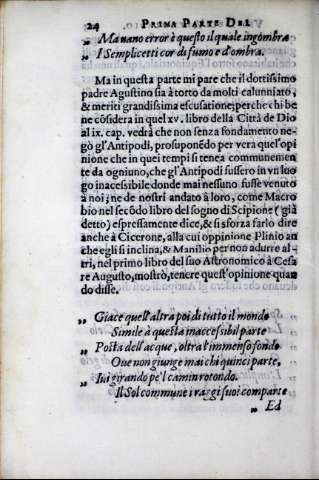 24 PRIMA PARTE DEL
„ Ma vano error è questo il quale ingombra
„ I Semplicetti cor di fumo e d'ombra.
Ma in questa parte mi pare che il dottissimo
padre Agustino sia à torto da molti calunniato,
& meriti grandissima escusatione; perche chi be
ne cõsidera in quel xv. libro della Città de Dio
al ix. cap. vedrà che non senza fondamento ne-
gò gl'Antipodi, prosuponẽdo per vera quel'opi
nione che in quei tempi si tenea communemen
te da ogniuno, che gl'Antipodi fussero in vn luo
go inacessibile donde mai nessuno fusse venuto
à noi; ne de nostri andato à loro, come Macro
bio nel secõdo libro del sogno di Scipione (già
detto) espressamente dice, & si sforza farlo dire
anche à Cicerone, alla cui oppinione Plinio an
che egli si inclina, & Manilio per non adurre al-
tri, nel primo libro del suo Astronomico à Cesa
re Augusto, mostrò, tenere quest'opinione quan
do disse.
„ Giace quest'altra poi di tutto il mondo
Simile à questa inaccessibil parte
„ Posta dell'acque, oltra l'immenso fondo
Oue non giunge mai chi quinci parte,
„ Iui girando pe'l camin rotondo.
Il Sol commune i raggi suoi comparte
„ Ed